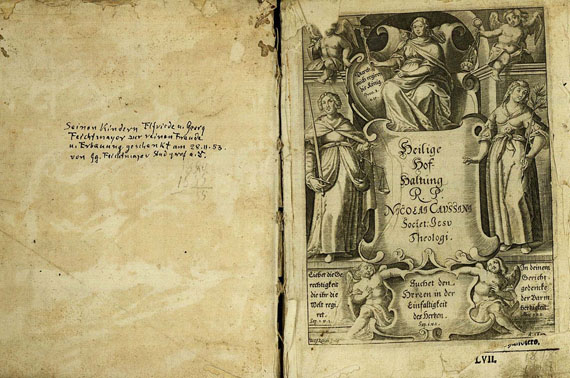 Seinen Kindern Elfriede u. Georg
Feichtmayer zur reinen Freude
u. Erbauung geschenkt am 28.11.53.
von Gg. Feichtmayer
Heilige
Hof-
Haltung
R. P.
NICOLAI CAUSSINI
Societ: Jesu
Theologi.
Liebet die Ge
rechtigkeit
die ihr die
Welt regi,
ret.
Suchet den
Herren in der
Einfaltigkeit
des Herten.
In deinem
Gericht
gedencke
der Barm
hertzigkeit.
LVII.